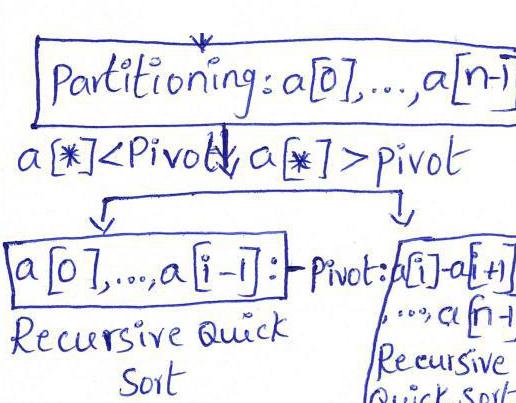 Partitioning: a[0],...,a[n-1
a[*]<Pivot a[*] > pivot
a[0],...,a[i-1]: Pivot: a[i]-a[i+1]
,...,a[n-1
Recursive Quick
Sort
Recursive
Quick Sort